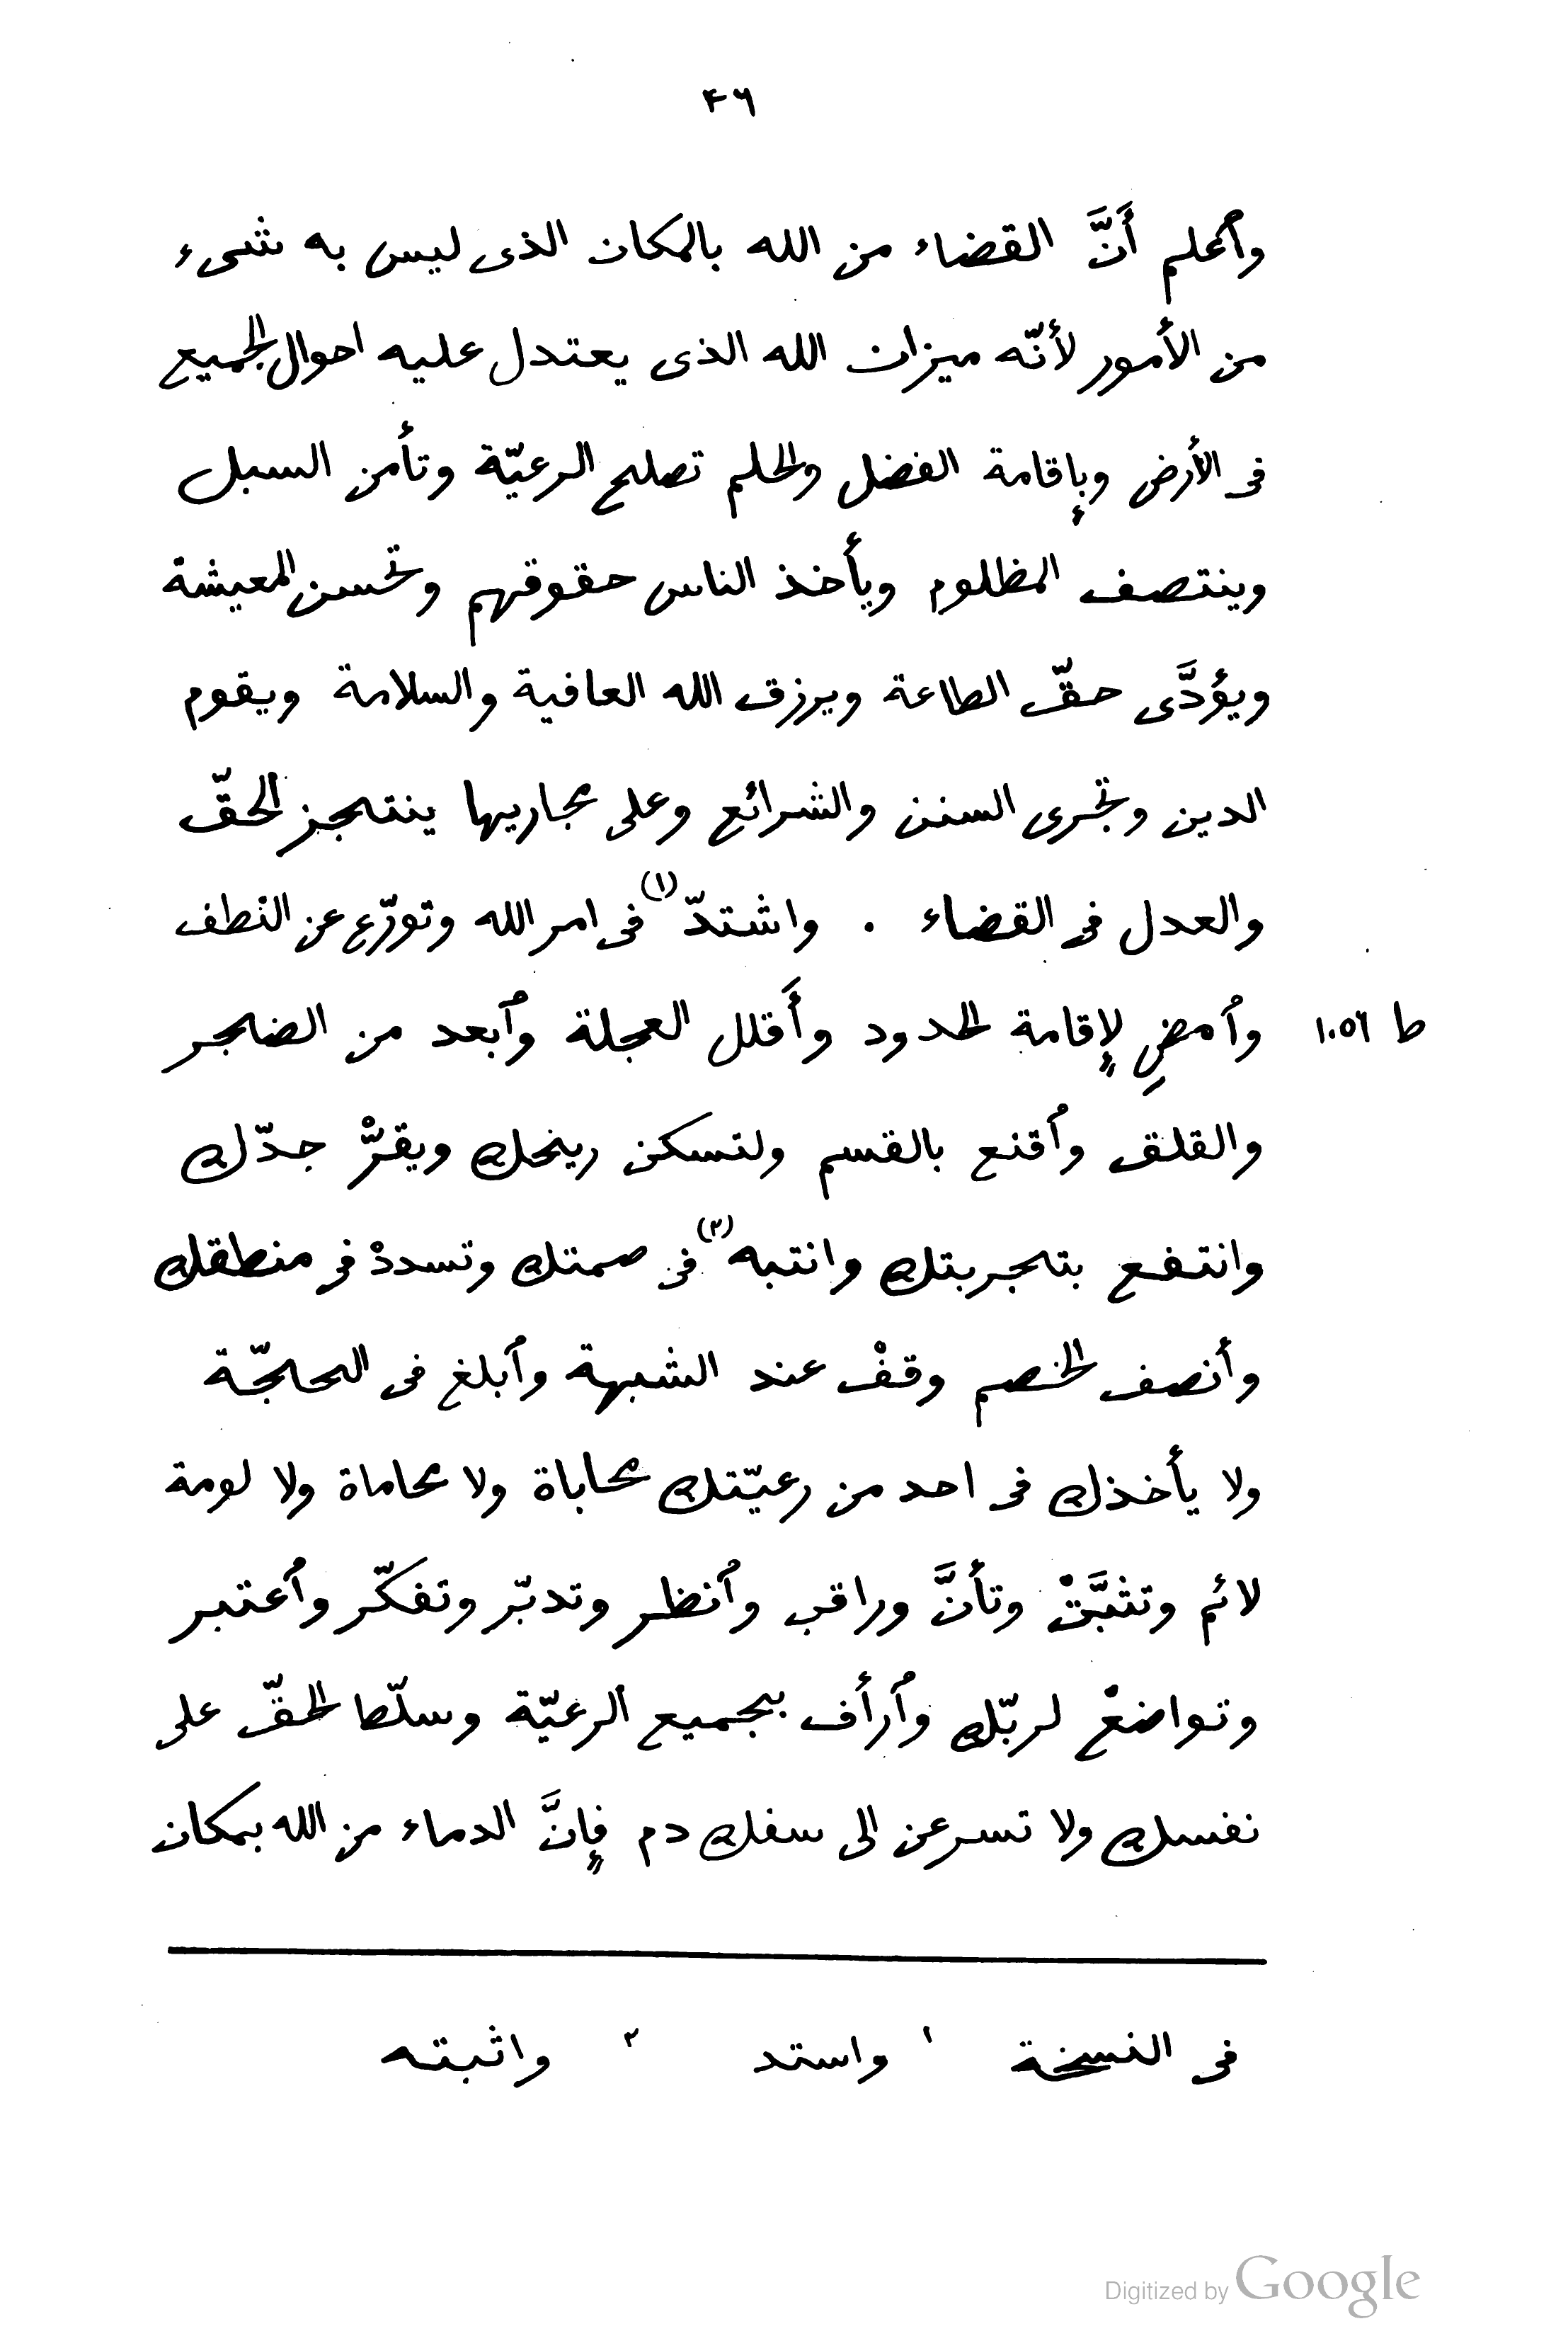 ٤٦
وٱعلم أَنَّ القضاء من الله بالمكان الذى ليس به شىء
من الأمور لأنّه ميزان الله الذى يعتدل عليه احوال الجميع
فى الأرض وبإقامة الفضل والحلم تصلح الرعيّة وتأمن السبل
وينتصف المظلوم ويأخذ الناس حقوقهم وتحسن المعيشة
ويؤدَّى حقّ الطاعة ويرزق الله العافية والسلامة ويقوم
الدين وتجرى السنن والشرائع وعلى مجاريها ينتجز ٱلحقّ
والعدل فى القضاء . واشتدّ (١) فى امر الله وتورّع عن النطف
ط ١٠٥٦ وٱمضِ لإقامة الحدود وأَقلل العجلة وٱبعد من الضجر
والقلق وٱقنع بالقسم ولتسكن ريحك ويقرّ جدّك
وانتفع بتجربتك وانتبه (٢) فى صمتك وتسددْ فى منطقك
وأنصف الخصم وقفْ عند الشبهة وٱبلغ فى الحجّة
ولا يأخذك فى احد من رعيّتك محاباة ولا محاماة ولا لومة
لائم وتثبَّتْ وتأنَّ وراقب وٱنظر وتدبّر وتفكّر وٱعتبر
وتواضعْ لربّك وٱرأف بجميع ٱلرعيّة وسلّط الحقّ على
نفسك ولا تسرعن الى سفك دم فإنَّ الدماء من الله بمكان
فى النسخة ١ واستد ٢ واثبته
Digitized by Google